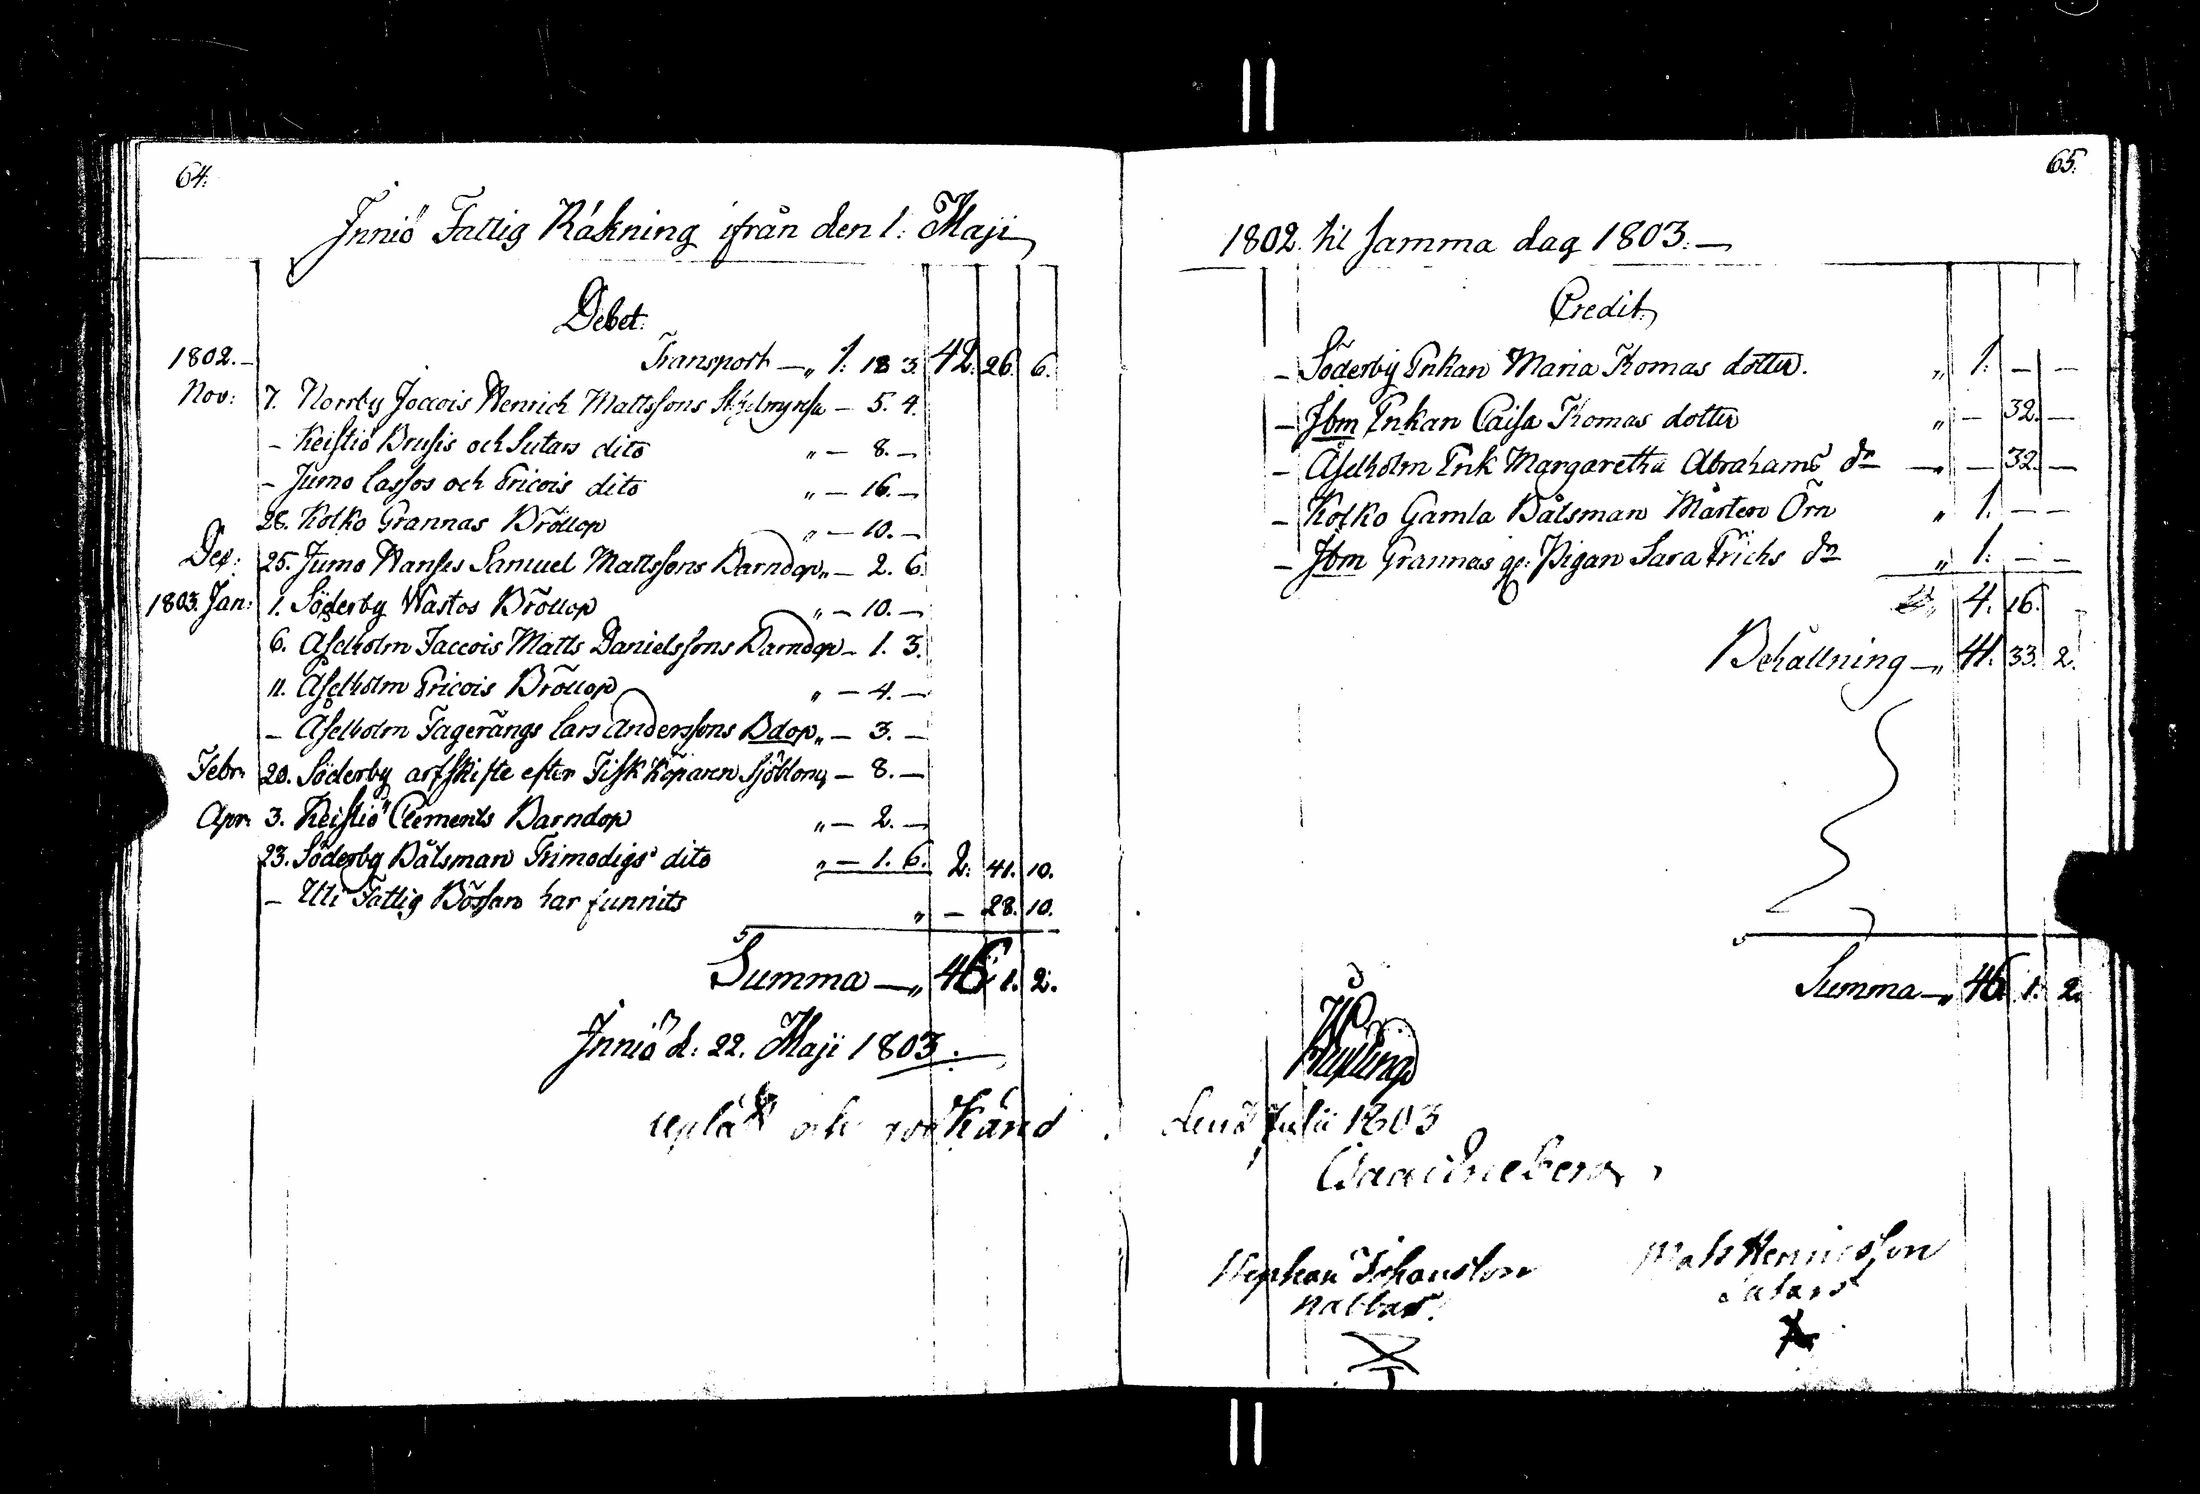 64.
Iniö Fattig Räkning ifrån den 1. Maji
Debet.
1802.– Transport –„ 1. 18 3. 42. 26. 6.
Nov: 7. Norrby Joccois Henrich Mattssons – 5. 4.
– Keistiö Brusis och Sutars dito „ – 8. –
– Jumo Lassos och Ericois dito „ – 16. –
28. Kolko Grannas Bröllop „ – 10. –
Dec: 25. Jumo Hanses Samuel Mattssons Barndop „ – 2. 6.
1803. Jan: 1. Söderby Wastos Bröllop „ – 10. –
6. Åselholm Jaccois Matts Danielssons Barndop – 1. 3.
11. Åselholm Ericois Bröllop „ – 4. –
– Åselholm Fagerängs Lars Anderssons Bdop „ – 3. –
Febr: 20. Söderby arfskifte efter Fisk Köparen Sjöblom „ – 8. –
Apr: 3. Keistiö Clements Barndop „ – 2. –
23. Söderby Båtsman Frimodigs dito „ – 1. 6. 2. 41. 10.
– Uti Fattig Bössan har funnits „ – 28. 10.
Summa –„ 46. 1. 2.
Iniö d. 22. Maji 1803.
upläst och godkänd
65.
1802. til samma dag 1803. –
Credit
– Söderby Enkan Maria Thomas dotter. „ 1. – –
– Ibm Enkan Caisa Thomas dotter „ – 32. –
– Åselholm Enk Margaretha Abrahams dr –„ – 32. –
– Kolko Gamla Båtsman Mårten Örn „ 1. – –
– Ibm Grannas gl. Pigan Sara Erichs dr „ 1. – –
4. 16.
Behållning –„ 41. 33. 2.
Summa –„ 46. 1. 2.
den Julii 1803
Stephan Johansson
Nabbas.
Mats Hennicsson
Sutars